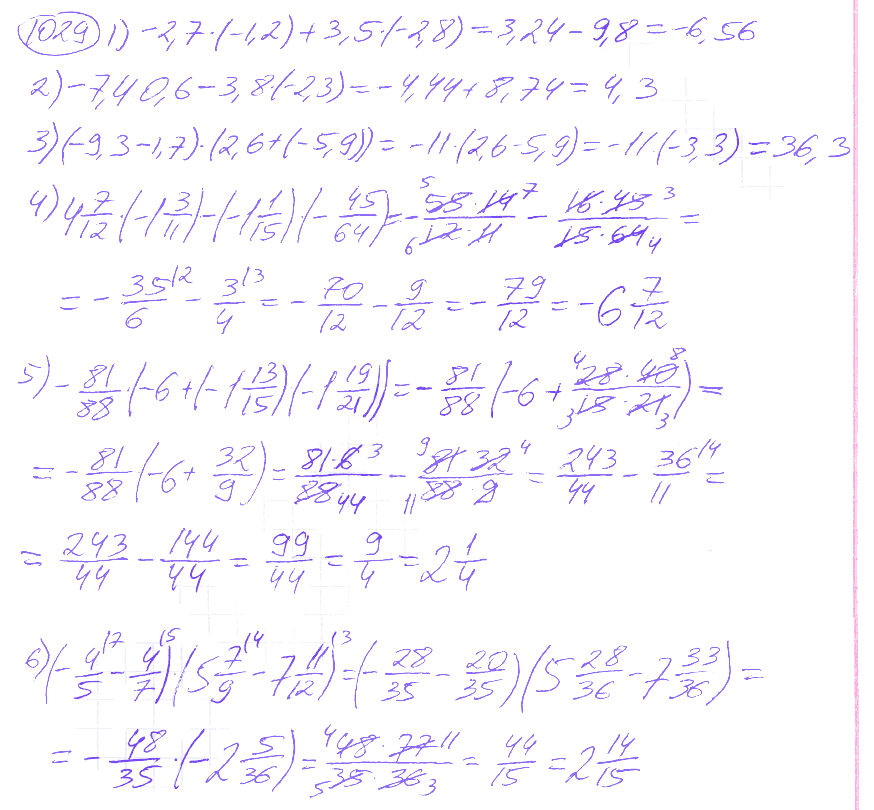 1029 1) -2,7·(-1,2)+3,5·(-2,8)=3,24-9,8=-6,56
2) -7,4·0,6-3,8(-2,3)=-4,44+8,74=4,3
3) (-9,3-1,7)·(2,6+(-5,9))=-11·(2,6-5,9)=-11·(-3,3)=36,3
4) 4 7/12·(-1 3/11)-(-1 1/15)(-45/64)=-(55·14)/(12·11)-(16·45)/(15·64)=
=-35/6-3/4=-70/12-9/12=-79/12=-6 7/12
5) -81/88·(-6+(-1 13/15)(-1 19/21))=-81/88(-6+(28·40)/(15·21))=
=-81/88(-6+32/9)=(81·6)/88-(81·32)/(88·9)=243/44-36/11=
=243/44-144/44=99/44=9/4=2 1/4
6) (-4/5-4/7)·(5 7/9-7 11/12)=(-28/35-20/35)(5 28/36-7 33/36)=
=-48/35·(-2 5/36)=(48·77)/(35·36)=44/15=2 14/15